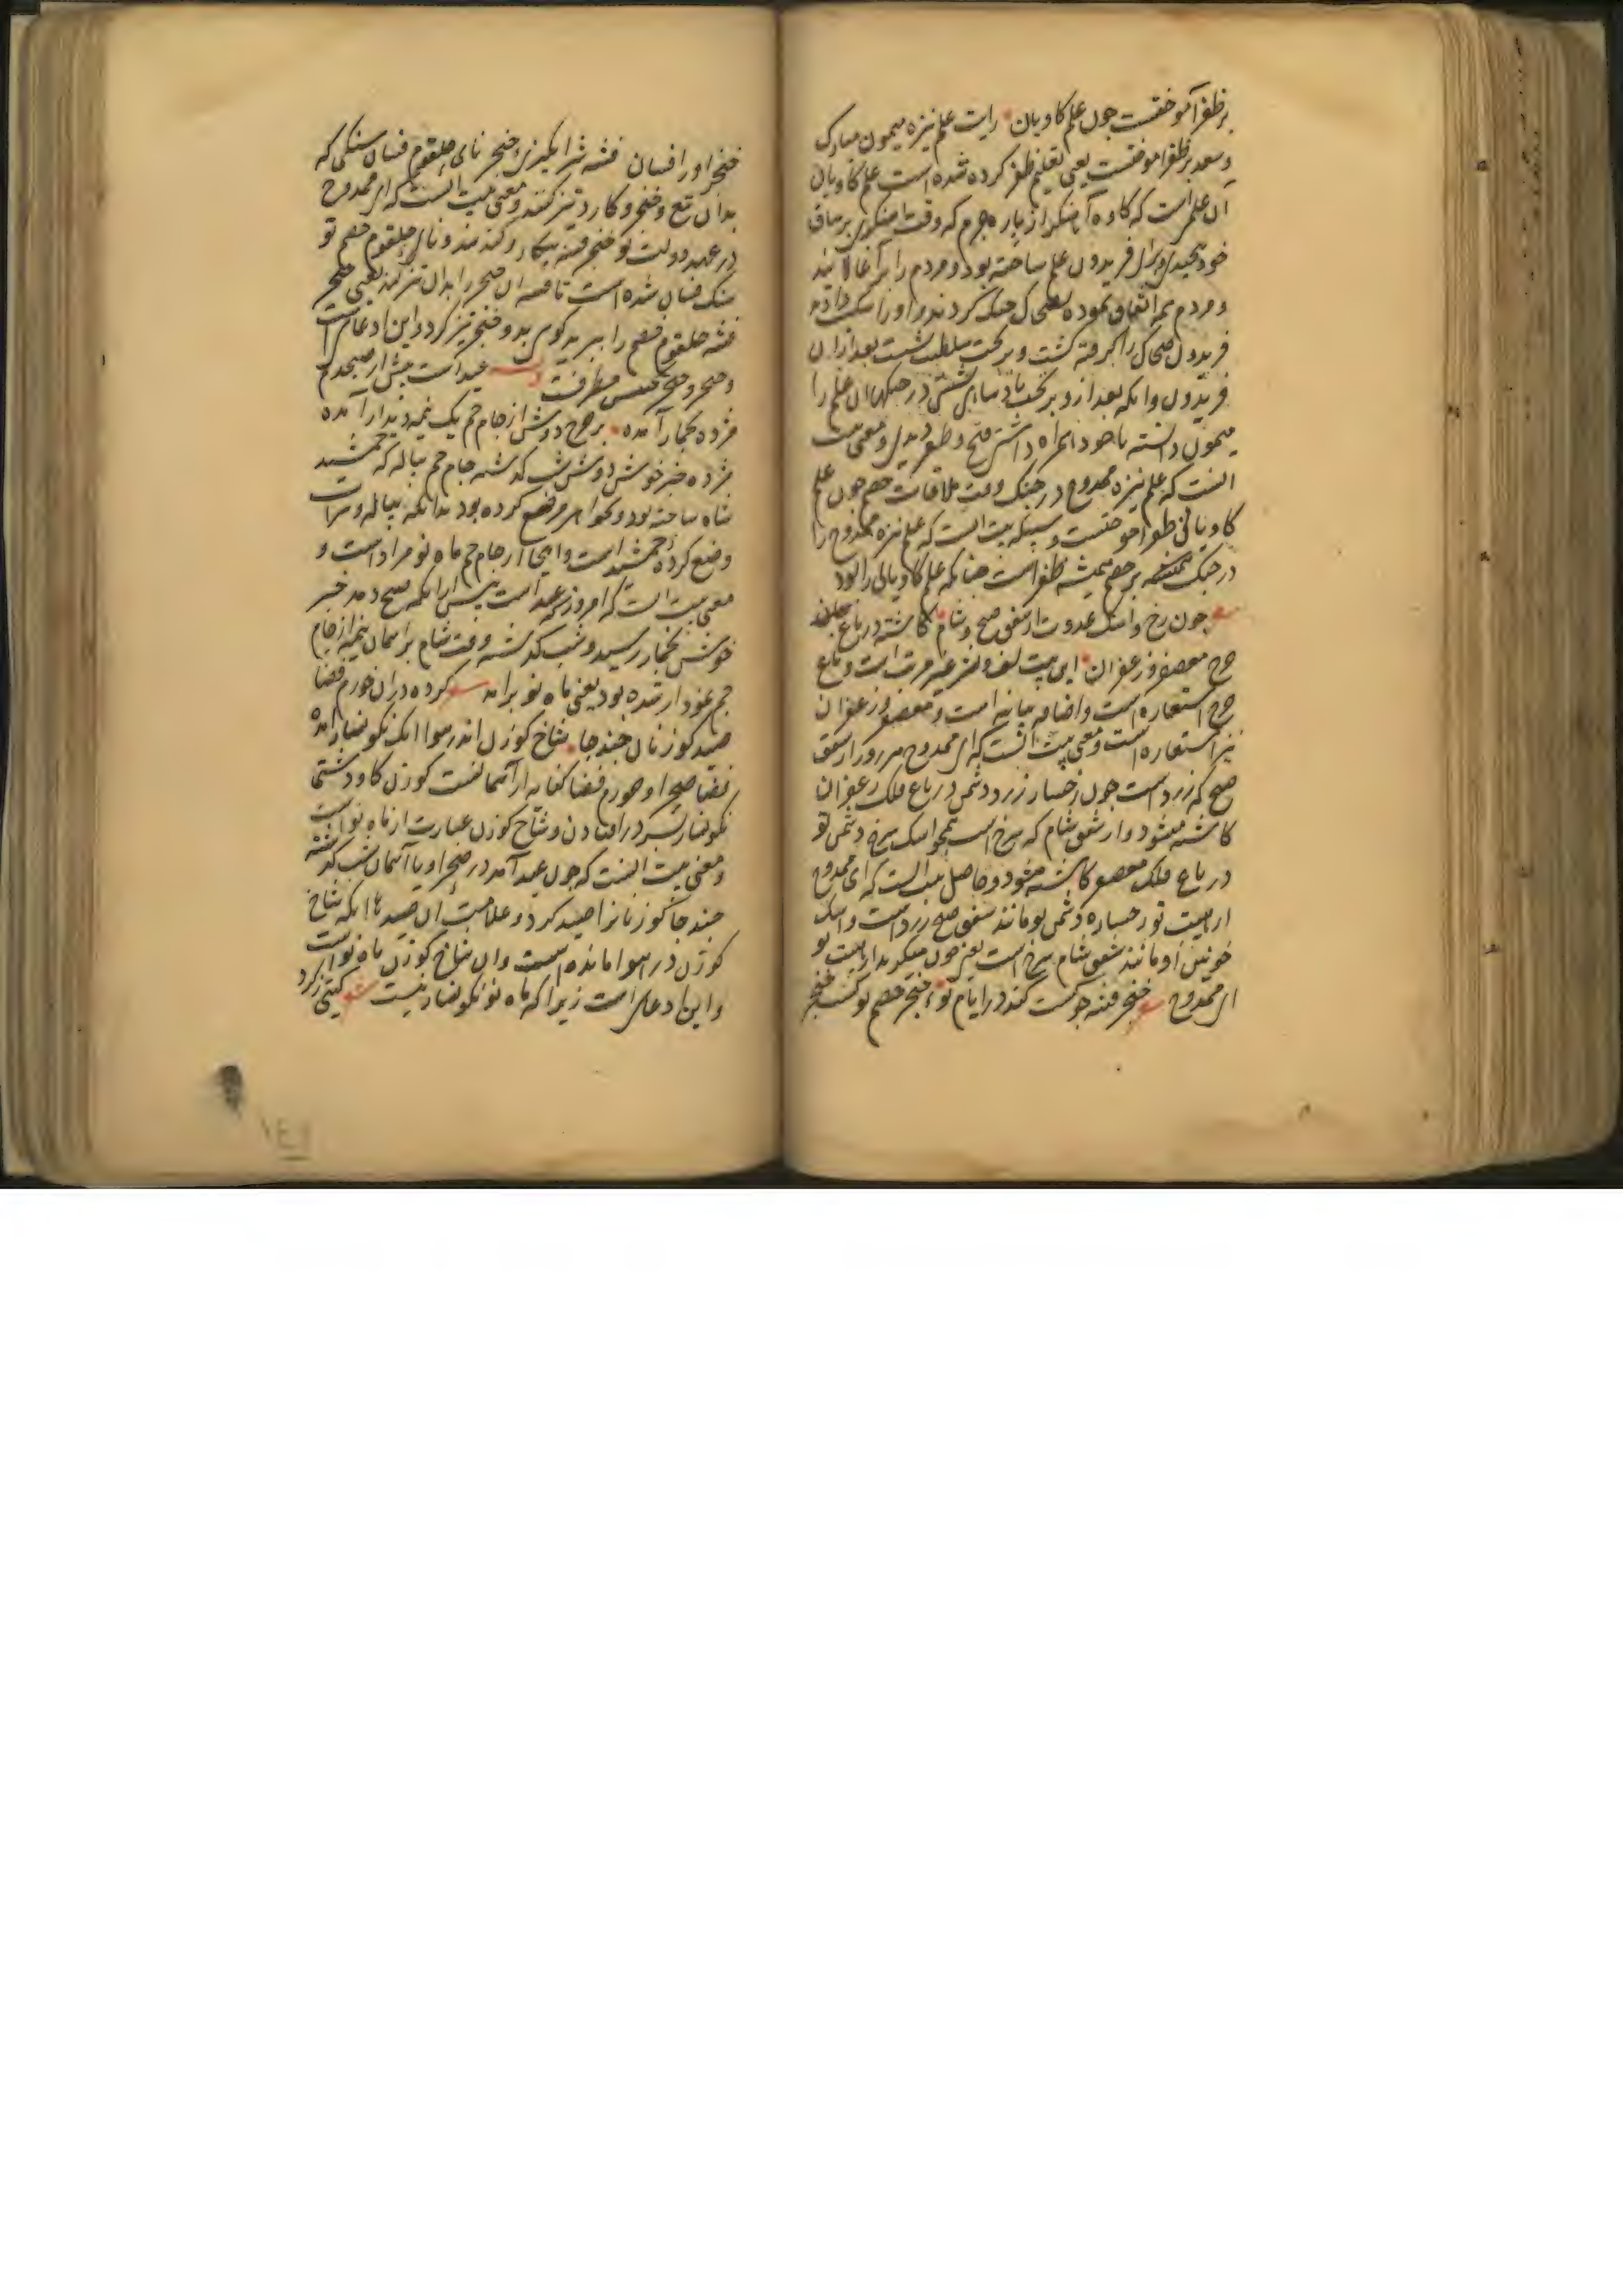 بر ظفر آموختست چون علم کاویان رایت علم نیزه میمون مبارک
و سعد بر ظفر اموختست یعنی تعلیم ظفر کرده شده است علم کاویان
آن علم است که کاوه آهنگر از پاره چرم که وقت آهنگری بر ساق
خود پیچیدی برای فریدون علم ساخته بود و مردم را
و مردم همه اتفاق نموده جنک کردند و او را شکست دادند
فریدون ضحاک را گرفته کشت و بر تخت سلطنت نشست بعد ازان
فریدون وانکه بعد ازو بر تخت پادشاهی نشستی در جنکها ان علم را
میمون دانسته با خود همراه داشتی فتح و ظفر دیدی و معنی بیت
انست که علم نیزه ممدوح در جنک وقت ملاقات خصم چون علم
کاویانی ظفر اموختست و بیت انست که علم نیزه ممدوح را
در جنک بر خصم همیشه ظفر است چنانکه علم کاویانی را بود
چون رخ و اشک عدوت از شفق صبح و شام کاشته در باغ
چرخ معصفر و زعفران این بیت لف و نشر غیر مرتب است و باغ
چرخ استعاره است و اضافه بیانیه است و معصفر و زعفران
نیز استعاره است و معنی بیت انست که ای ممدوح هر روز از شفق
صبح که زرد است چون رخسار زرد دشمن در باغ فلک زعفران
کاشته میشود و از شفق شام که سرخ است همچو اشک سرخ دشمن تو
در باغ فلک معصفر کاشته میشود و حاصل بیت انست که ای ممدوح
از هیبت تو رخساره دشمن تو مانند شفق صبح زرد است و اشک
خونین او مانند شفق شام سرخ است یعنی خون میکرید از هیبت تو
ای ممدوح خنجر فتنه چو کشت کند در ایام تو خنجر خصم تو کشت خنجر
خنجر او را فسان فتنه شر انگیزی خنجر نای حلقوم فسان سنکی که
بدان تیغ و خنجر و کارد تیز کنند و معنی بیت انست که ای ممدوح
در عهد دولت تو خنجر فتنه بیکار و کند شد و نای حلقوم خصم تو
سنک فسان شده است تا فتنه ان خنجر را بدان تیز کند یعنی خنجر
فتنه حلقوم خصم را ببرید کوی بدو خنجر تیز کرد و این ادعای است
و خنجر و حنجر عید است پیش از صبحدم
مژده بخمار آمده بر چرخ دوش از جام جم یک نیمه دیدار آمده
مژده خبر خوش دوش شب کذشته جام جم پیاله که جمشید
شاه ساخته بود وضع کرده بود بدانکه پیاله و شراب
وضع کرده جمشید است و اینجا از جام جم ماه نو مراد است و
معنی بیت انست که امروز عید است پیش ازانکه صبح دمد خبر
خوش بخمار رسید و شب کذشته وقت شام بر اسمان نیمه از جام
جم نمودار شده بود یعنی ماه نو برامد کرده دران خورم فضا
صید کوزنان چند جا شاخ کوزن اندر هوا اینک نکونسار امده
فضا صحرا و خورم فضا کنایه از آسمانست کوزن کاو دشتی
نکونسار سر در افتادن و شاخ کوزن عبارت از ماه نو است
و معنی بیت انست که چون عید آمد در صحرا و یا آسمان شب کذشته
چند جا کوزنانرا صید کرد و علامت ان صیدها انکه شاخ
کوزن در هوا مانده است و ان شاخ کوزن ماه نو است
و این ادعای است زیرا که ماه نو نکونسار نیست کیتی زکرد
۱٤١